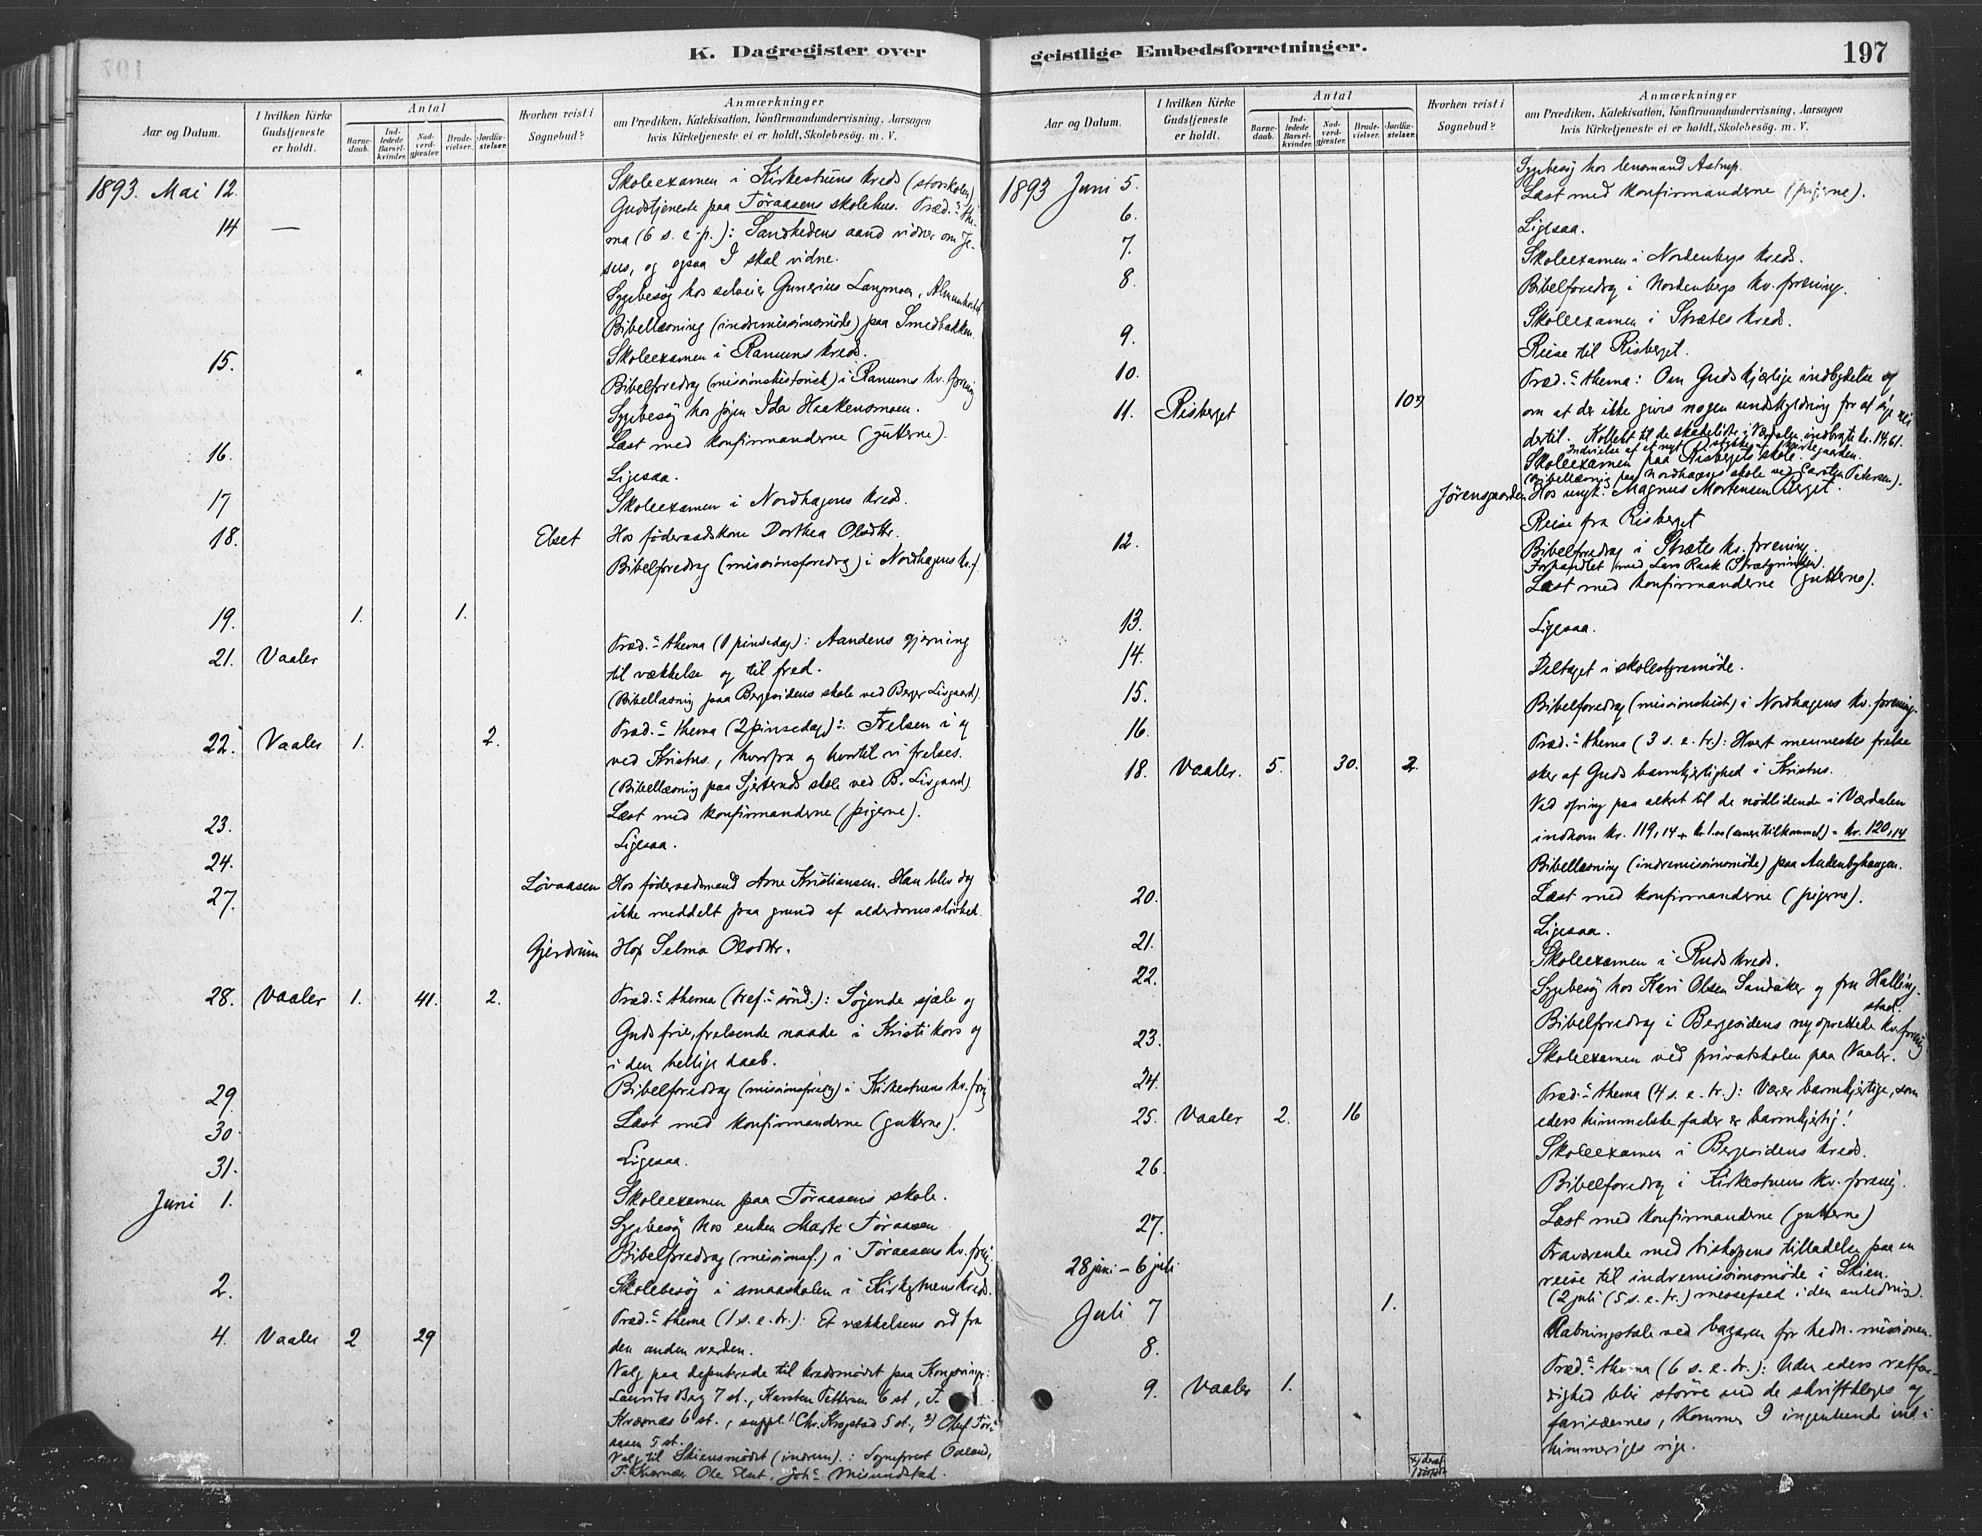 K. Dagregister over
Aar og Datum.
I hvilken Kirke Gudstjeneste er holdt.
Antal
Barne-daab.
Ind-ledede Barsel-kvinder.
Nad-verd-gjæster.
Brude-vielser.
Jordfæ-stelser.
Hvorhen reist i Sognebud?
Anmærkninger
om Prædiken, Katekisation, Konfirmandundervisning, Aarsagen
hvis Kirketjeneste ei er holdt, Skolebesög. m. V.
1893. Mai 12. Skoleexamen i Kirkestuens kreds (storskolen)
14 — Gudstjeneste paa Toraasens skolehus. Præd.ns the-
ma (6 s. e. p.): Sandhedens aand vidner om Je-
sus, og ogsaa I skal vidne.
Sygebesøg hos selveier Gunerius Langmoen,
Bibellæsning (indremissionsmöde) paa Smedbakken.
15. Skoleexamen i Ranums kreds.
Bibelforedrag (missionshistorisk) i Ranums kv. foreng
Sygebesøg hos pigen Ida Haakensmoen.
16. Læst med konfirmanderne (gutterne).
17 Ligesaa.
18. Skoleexamen i Nordhagens kreds.
Elset Hos föderaadskone Dorthea Olsdtr.
Bibelforedrag (missionsforedrag) i Nordhagens kv. f.
19. 1. 1.
21. Vaaler Præd.ns thema (1 pinsedag): Aandens gjerning
til vækkelse og til fred.
(Bibellæsning paa Bergesidens skole ved Berger Livgaard)
22. Vaaler 1. 2. Præd.ns thema (2 pinsedag): Frelsen i og
ved Kristus, hvorfra og hvortil vi frelses.
(Bibellæsning paa skole ved B. Livgaard).
23. Læst med konfirmanderne (pigerne).
24. Ligesaa.
27. Løvaasen Hos föderaadsmand Arne Kristiansen. Han blev dog
ikke meddelt paa grund af alderdomssløvhed.
Gjerdrum Hos Selma Olsdtr.
28. Vaaler 1. 41. 2. Præd.ns thema (tref. sönd.): Søgende sjæle og
Guds frie, frelsende naade i Kristi kors og
i den hellige daab.
29. Bibelforedrag (missionsforedrag) i Kirkestuens kv. forng
30. Læst med konfirmanderne (gutterne).
31. Ligesaa.
Juni 1. Skoleexamen paa Toraasens skole.
Sygebesøg hos enken Marte Toraasen
Bibelforedrag (missionsf.) i Toraasens kv. forng.
2. Skolebesøg i smaaskolen i Kirkestuens kreds.
4. Vaaler 2 29 Præd.ns thema (1 s. e. tr.): Et vækkelsens ord fra
den anden verden.
Valg paa deputerede til kredsmödet paa Kongsvinger:
Laurits Berg 7 st., Karsten Pettersen 6 st., T.
Kværnæs 6 st., suppl.: Chr. Krogstad 5 st., 2) Oluf Tör-
aasen 5 st.
Valg til Skiensmödet (indrem.): Sogneprest
T. Kværnæs, Ole Elset, Misundstad.
geistlige Embedsforretninger.
197
Aar og Datum.
I hvilken Kirke Gudstjeneste er holdt.
Antal
Barne-daab.
Ind-ledede Barsel-kvinder.
Nad-verd-gjæster.
Brude-vielser.
Jordfæ-stelser.
Hvorhen reist i Sognebud?
Anmærkninger
om Prædiken, Katekisation, Konfirmandundervisning, Aarsagen
hvis Kirketjeneste ei er holdt, Skolebesøg. m. V.
1893 Juni 5. Sygebesøg hos lensmand Astrup.
6. Læst med konfirmanderne (pigerne).
7. Ligesaa.
8. Skoleexamen i Nordenbergs kreds.
Bibelforedrag i Nordenbergs kv. forening.
9. Skoleexamen i Strætes kreds.
10. Reise til Risberget.
11. Risberget Præd.ns thema: Om Guds kjærlige indbydelse og
om at der ikke gives nogen undskyldning for at sige nei
dertil. Kollekt til de skadelidte i Værdalen indbragte kr. 14,61.
Indvielse af et nyt stykke af kirkegaarden.
Skoleexamen paa Risbergets skole.
Bibellæsning paa Nordhagens skole ved Carsten Petersen).
Jörensgaarden Hos ungk. Magnus Mortensen Berget.
12. Reise fra Risberget
Bibelforedrag i Strætes kv. forening.
Forhandlet med Lars Rask
Læst med konfirmanderne (gutterne).
13. Ligesaa.
14. Deltaget i skolestyremöde.
15. Bibelforedrag (missionshist.) i Nordhagens kv. forening.
16.
18. Vaaler. 5. 30. 2. Præd.ns thema (3 s. e. tr.): Hvert menneskes frelse
sker af Guds barmhjertighed i Kristus.
Ved ofring paa alteret til de nödlidende i Værdalen
indkom kr. 119,14 + kr 1.00 (senere tilkommet) = kr. 120,14
Bibellæsning (indremissionsmöde) paa Audenbyhaugen.
20. Læst med konfirmanderne (pigerne).
21. Ligesaa.
22. Skoleexamen i Ruds kreds.
Sygebesøg hos Kari Olsen Sandaker og fru Halling-
stad.
23. Bibelforedrag i Bergesidens nyoprettede kv. forening
24. Skoleexamen ved privatskolen paa Vaaler.
25. Vaaler 2. 16 Præd.ns thema (4 s. e. tr.): Værer barmhjertige, som
eders himmelske fader er barmhjertig!
26. Skoleexamen i Bergesidens kreds.
Bibelforedrag i Kirkestuens kv. forenig.
27. Læst med konfirmanderne (gutterne)
28 juni – 6 juli Fraværende med biskopens tilladelse paa en
reise til indremissionsmöde i Skien.
(2 juli (5 s. e. tr.) messefald i den anledning).
Juli 7 1.
8. Aabningstale ved bazaren for hedn. missionen.
9. Vaaler 1. Præd.ns thema (6 s. e. tr.): Uden eders retfær-
dighed blir större end de skriftkloges og
farisæernes, kommer I ingenlunde ind i
himmeriges rige.